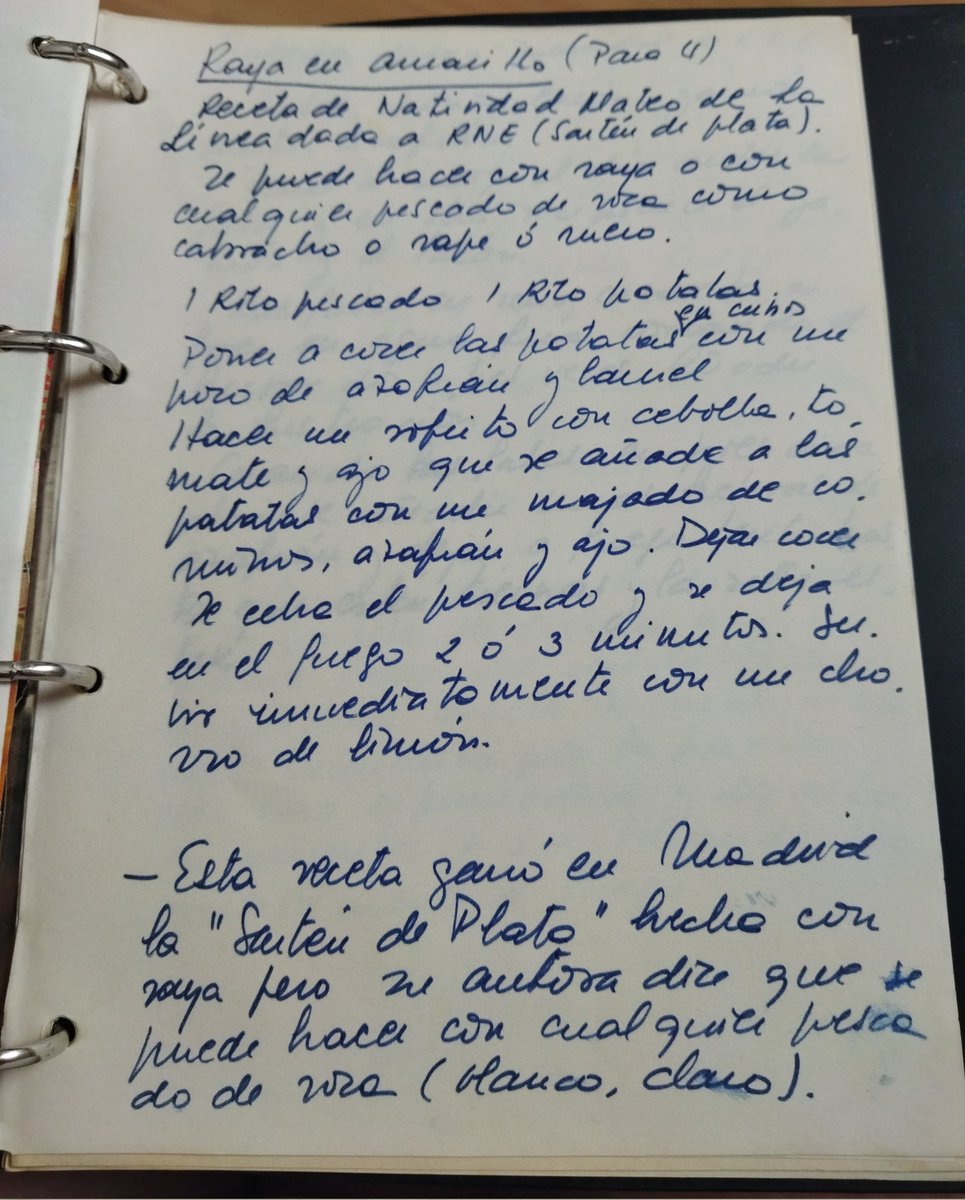 Raya en amarillo (Para 4)
Receta de Natividad Mateo de la
Línea dada a RNE (Sartén de plata).
Se puede hacer con raya o con
cualquier pescado de roca como
cabracho o rape ó mero.
1 Kilo pescado 1 Kilo patatas.
en cubos
Poner a cocer las patatas con un
poco de azafrán y laurel
Hacer un sofrito con cebolla, to
mate y ajo que se añade a las
patatas con un majado de co.
minos, azafrán y ajo. Dejar cocer
Se echa el pescado y se deja
en el fuego 2 ó 3 minutos. Ser.
vir inmediatamente con un cho.
rro de limón.
— Esta receta ganó en Madrid
la "Sartén de Plata" hecha con
raya pero su autora dice que se
puede hacer con cualquier pesca
do de roca (blanco, claro).